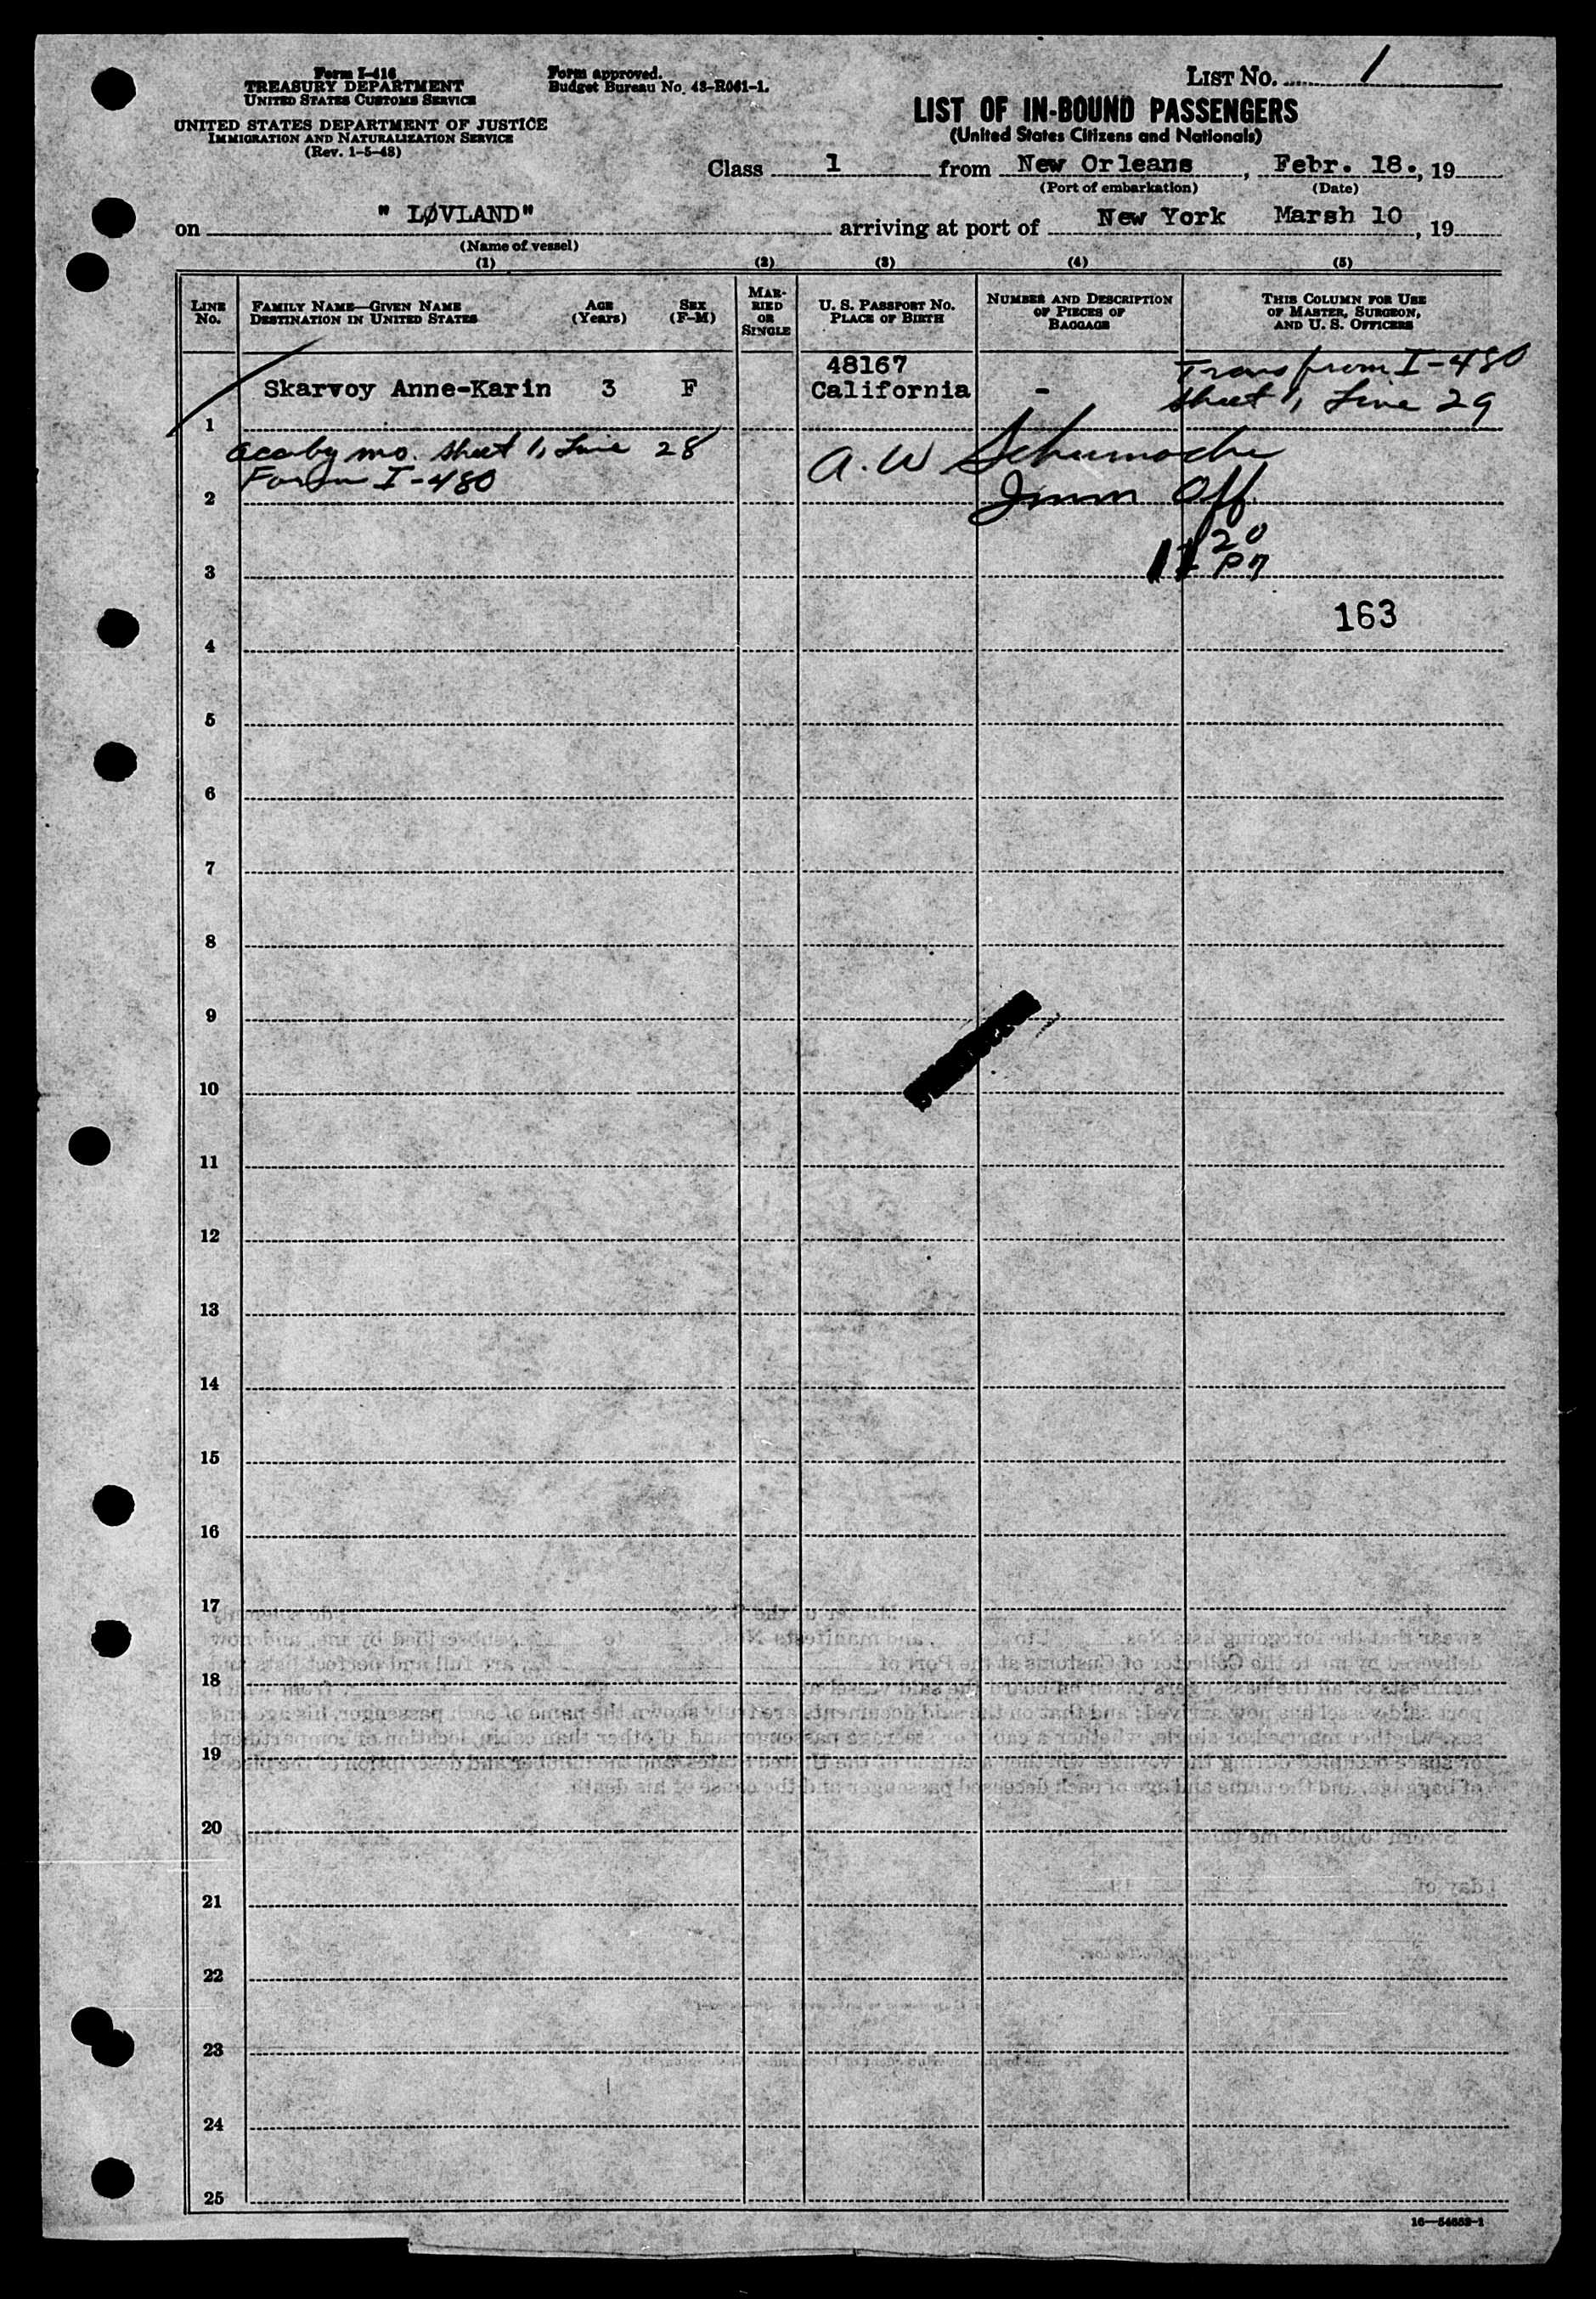 Form I-416
TREASURY DEPARTMENT
UNITED STATES CUSTOMS SERVICE
UNITED STATES DEPARTMENT OF JUSTICE
IMMIGRATION AND NATURALIZATION SERVICE
(Rev. 1-5-48)
Form approved.
Budget Bureau No. 43-R061-1.
LIST NO. 1
LIST OF IN-BOUND PASSENGERS
(United States Citizens and Nationals)
Class 1 from New Orleans, Febr. 18., 19
(Port of embarkation) (Date)
on " LØVLAND" arriving at port of New York Marsh 10, 19
(Name of vessel)
(1) (2) (3) (4) (5)
LINE NO.
FAMILY NAME—GIVEN NAME
DESTINATION IN UNITED STATES
AGE
(Years)
SEX
(F-M)
MAR-
RIED
OR
SINGLE
U. S. PASSPORT NO.
PLACE OF BIRTH
NUMBER AND DESCRIPTION
OF PIECES OF
BAGGAGE
THIS COLUMN FOR USE
OF MASTER, SURGEON,
AND U. S. OFFICERS
48167 Trans from I-480
Skarvoy Anne-Karin 3 F California - Sheet 1, Line 29
1
by mo. sheet 1, Line 28 A. W
Form I-480
2 Imm Off
20
3 PM
163
4
5
6
7
8
9
10
11
12
13
14
15
16
17
18
19
20
21
22
23
24
25
16—54682-1